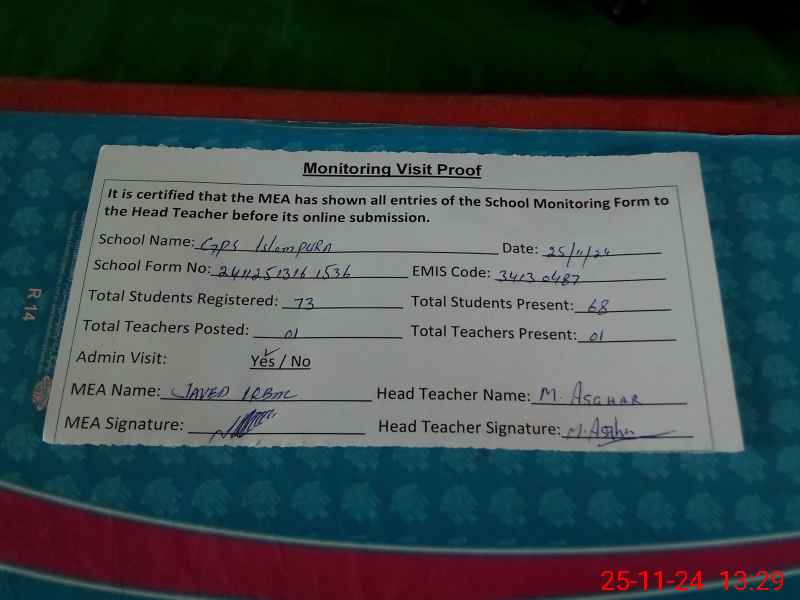 Monitoring Visit Proof
It is certified that the MEA has shown all entries of the School Monitoring Form to
the Head Teacher before its online submission.
School Name: GPS Islampura Date: 25/11/24
School Form No: 2411251316 1536 EMIS Code: 34130487
Total Students Registered: 73 Total Students Present: 68
Total Teachers Posted: 01 Total Teachers Present: 01
Admin Visit: Yes / No
MEA Name: JAVED Head Teacher Name: M. ASGHAR
MEA Signature: Head Teacher Signature: M. Asghar
R.14
25-11-24 13:29